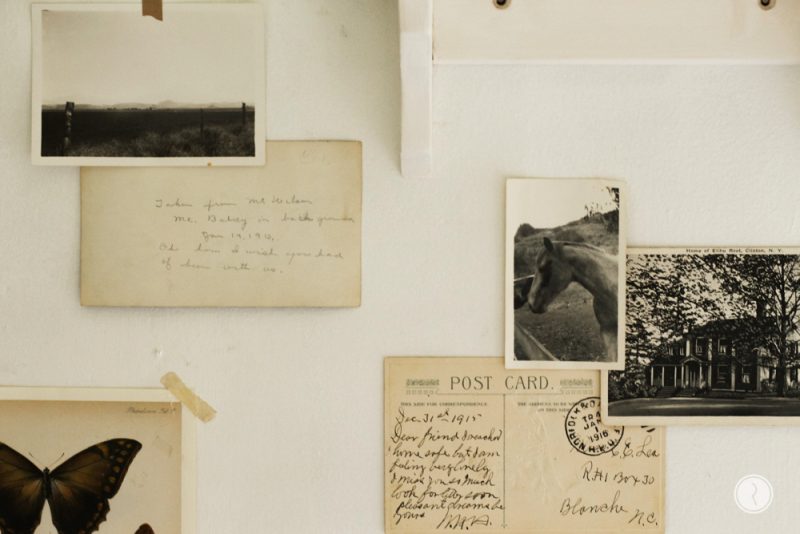 Taken from Mt Wilson
Mt. Baldy in back ground
Jan 19, 1913,
Oh how I wish you had
of been with us.
Home of Elihu Root, Clinton, N. Y.
POST CARD.
THIS SIDE FOR CORRESPONDENCE.
THE ADDRESS TO BE
ON THIS SIDE
Dec 31st 1915
Dear friend I reached
home safe but I am
feeling very lonely
I miss you so much
look for letter soon
pleasant dreams be
yours
TR
JAN
1
1916
C. Lea
R.#1 Box 30
Blanche N.C.